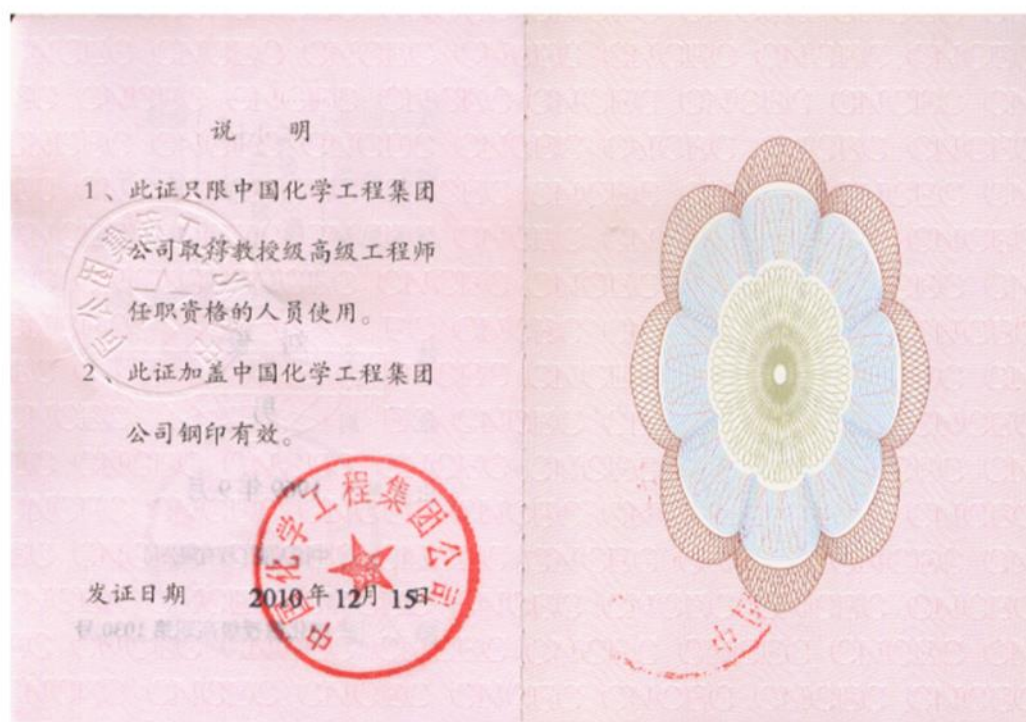 说 明
1、此证只限中国化学工程集团
公司取得教授级高级工程师
任职资格的人员使用。
2、此证加盖中国化学工程集团
公司钢印有效。
中国化学工程集团公司
发证日期 2010年12月15日